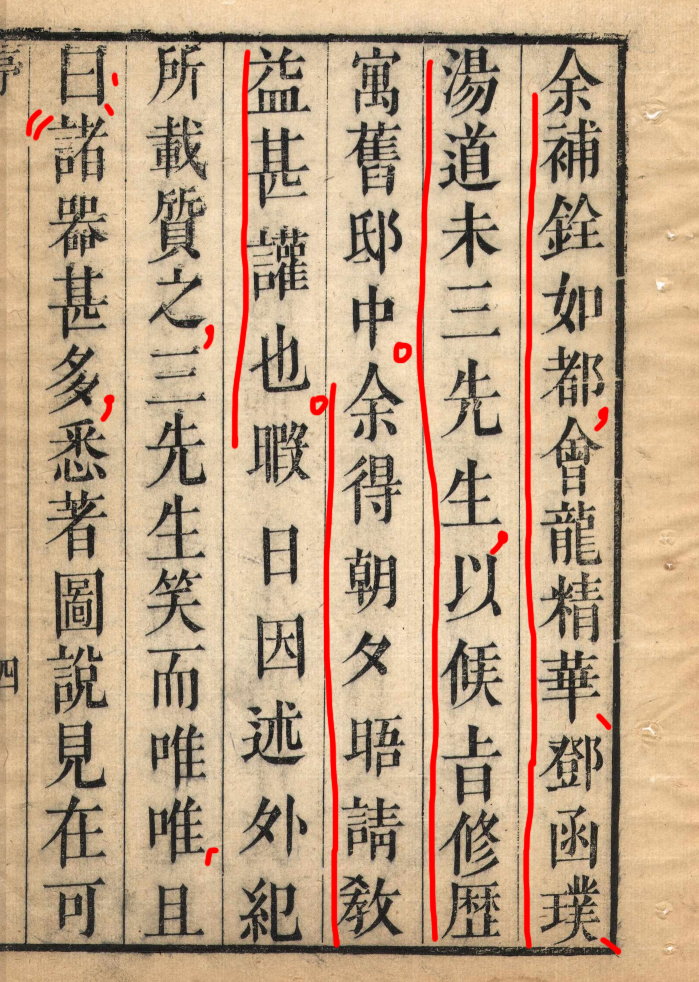 余補銓如都,會龍精華、鄧函璞、
湯道未三先生,以候㫖修歷
寓舊邸中。余得朝夕晤請教
益甚讙也。暇日因述外紀
所載質之,三先生笑而唯唯,且
曰:"諸器甚多,悉著圖說見在可
四